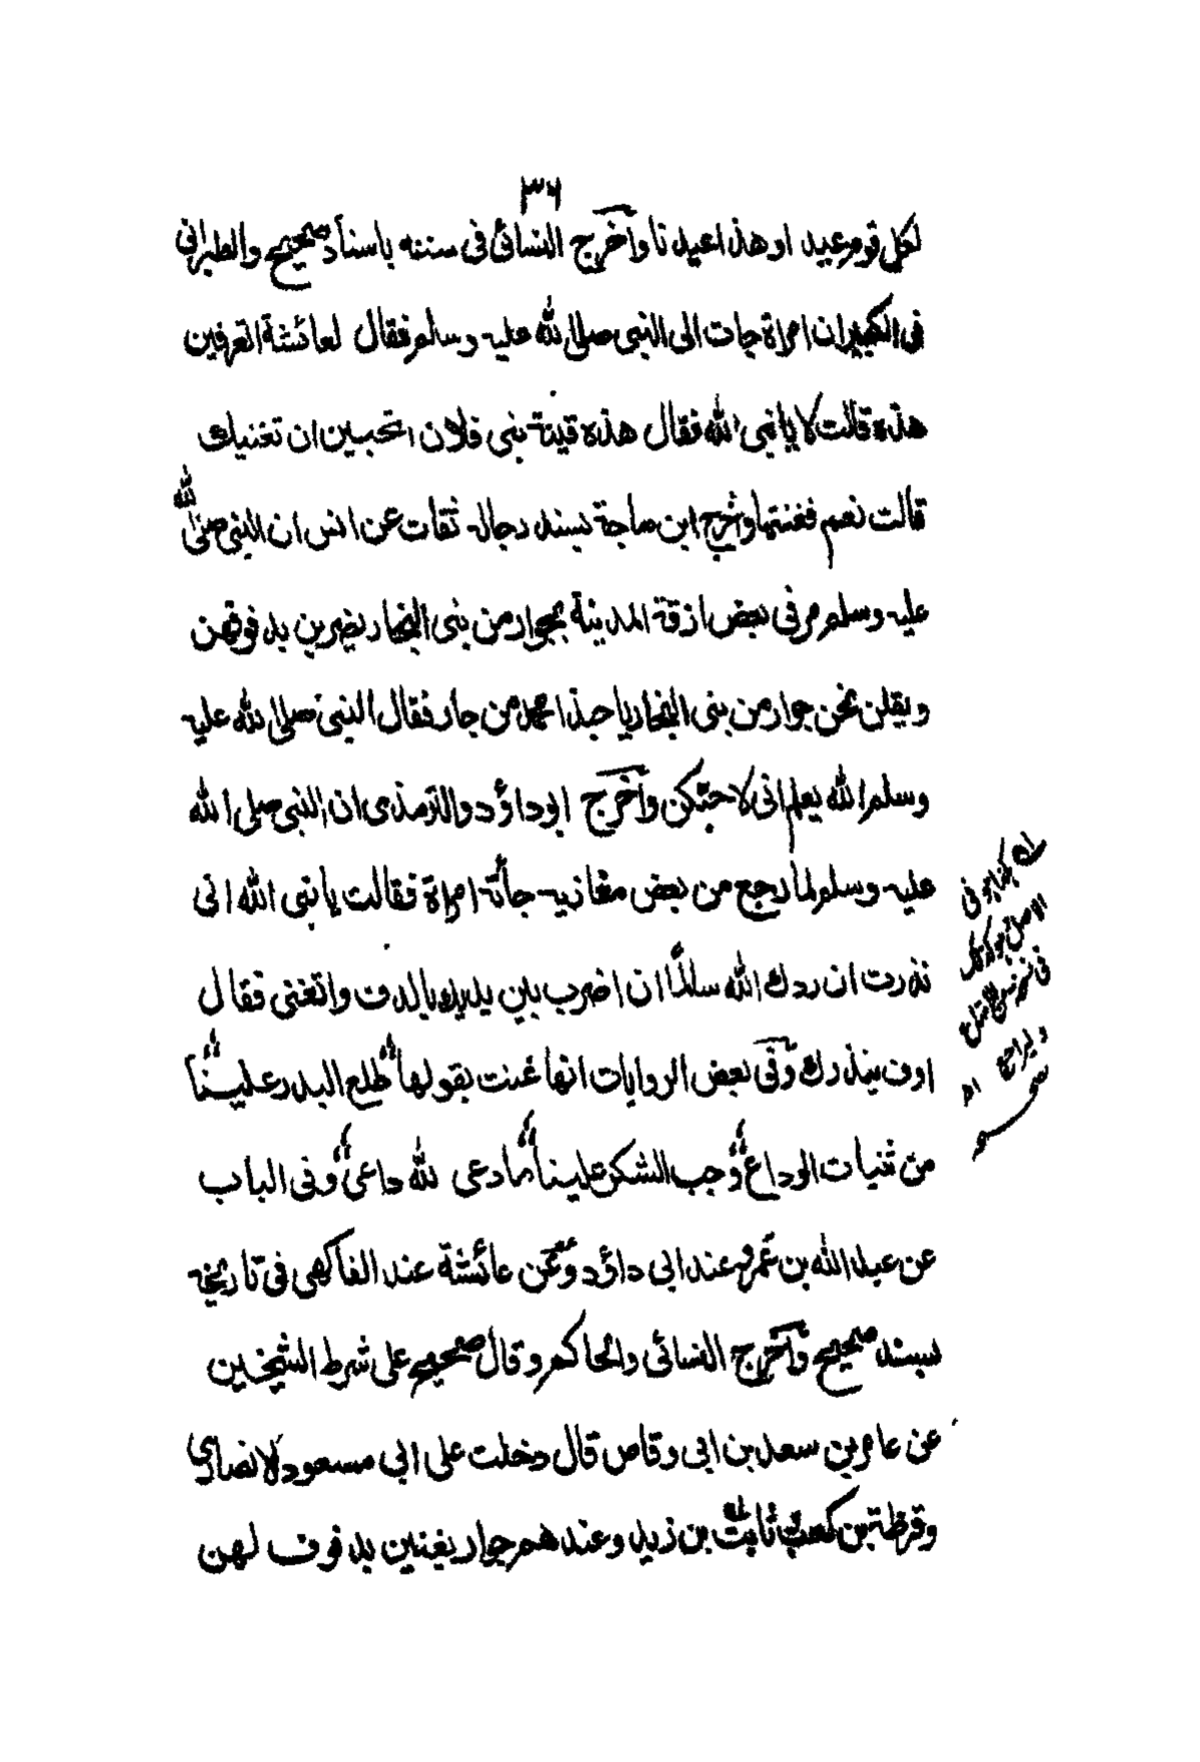 ٣٦
لكل قوم عيد او هذا عيدنا وآخرج النسائى فى سننه باسناد صحيح والطبرانى
فى الكبير ان امراة جات الى النبى صلى الله عليه وسلم فقال لعائشة اتعرفين
هذه قالت لا يا نبى الله فقال هذه قينة بنى فلان اتحبين ان تغنيك
قالت نعم فغنتها وآخرج ابن ماجة بسند رجاله ثقات عن انس ان النبى صلى الله
عليه وسلم مر فى بعض ازقة المدينة بجوار من بنى النجار يضربن بدفوفهن
ويقلن نحن جوار من بنى النجار يا حبذا محمد من جار فقال النبى صلى الله عليه
وسلم الله يعلم انى لاحبّكن وآخرج ابوداؤد والترمذى ان النبى صلى الله
عليه وسلم لما رجع من بعض مغازيه جأته امراة فقالت يا نبى الله انى
نذرت ان ردك الله سالمًا ان اضرب بين يديك بالدف واتغنى فقال
اوف بنذرك وفى بعض الروايات انها غنت بقولها طلع البدر علينا
من ثنيات الوداع وجب الشكر علينا ما دعى لله داعى وفى الباب
عن عبد الله بن عمرو عند ابى داؤد وعن عائشة عند الفاكهى فى تاريخه
بسند صحيح وآخرج النسائى والحاكم وقال صحيح على شرط الشيخين
عن عامر بن سعد بن ابى وقاص قال دخلت على ابى مسعود الانصارى
وقرظة بن كعب ثابت بن زيد وعندهم جوار يغنين بدفوف لهن
هكذا هو فى
الاصل
وليراجع اه